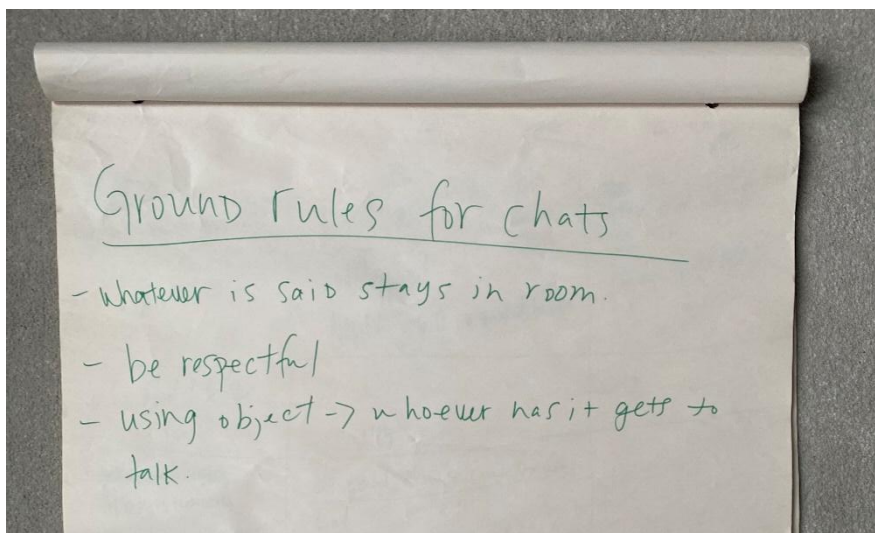 Ground rules for chats
- whatever is said stays in room.
- be respectful
- using object -> whoever has it gets to
talk.